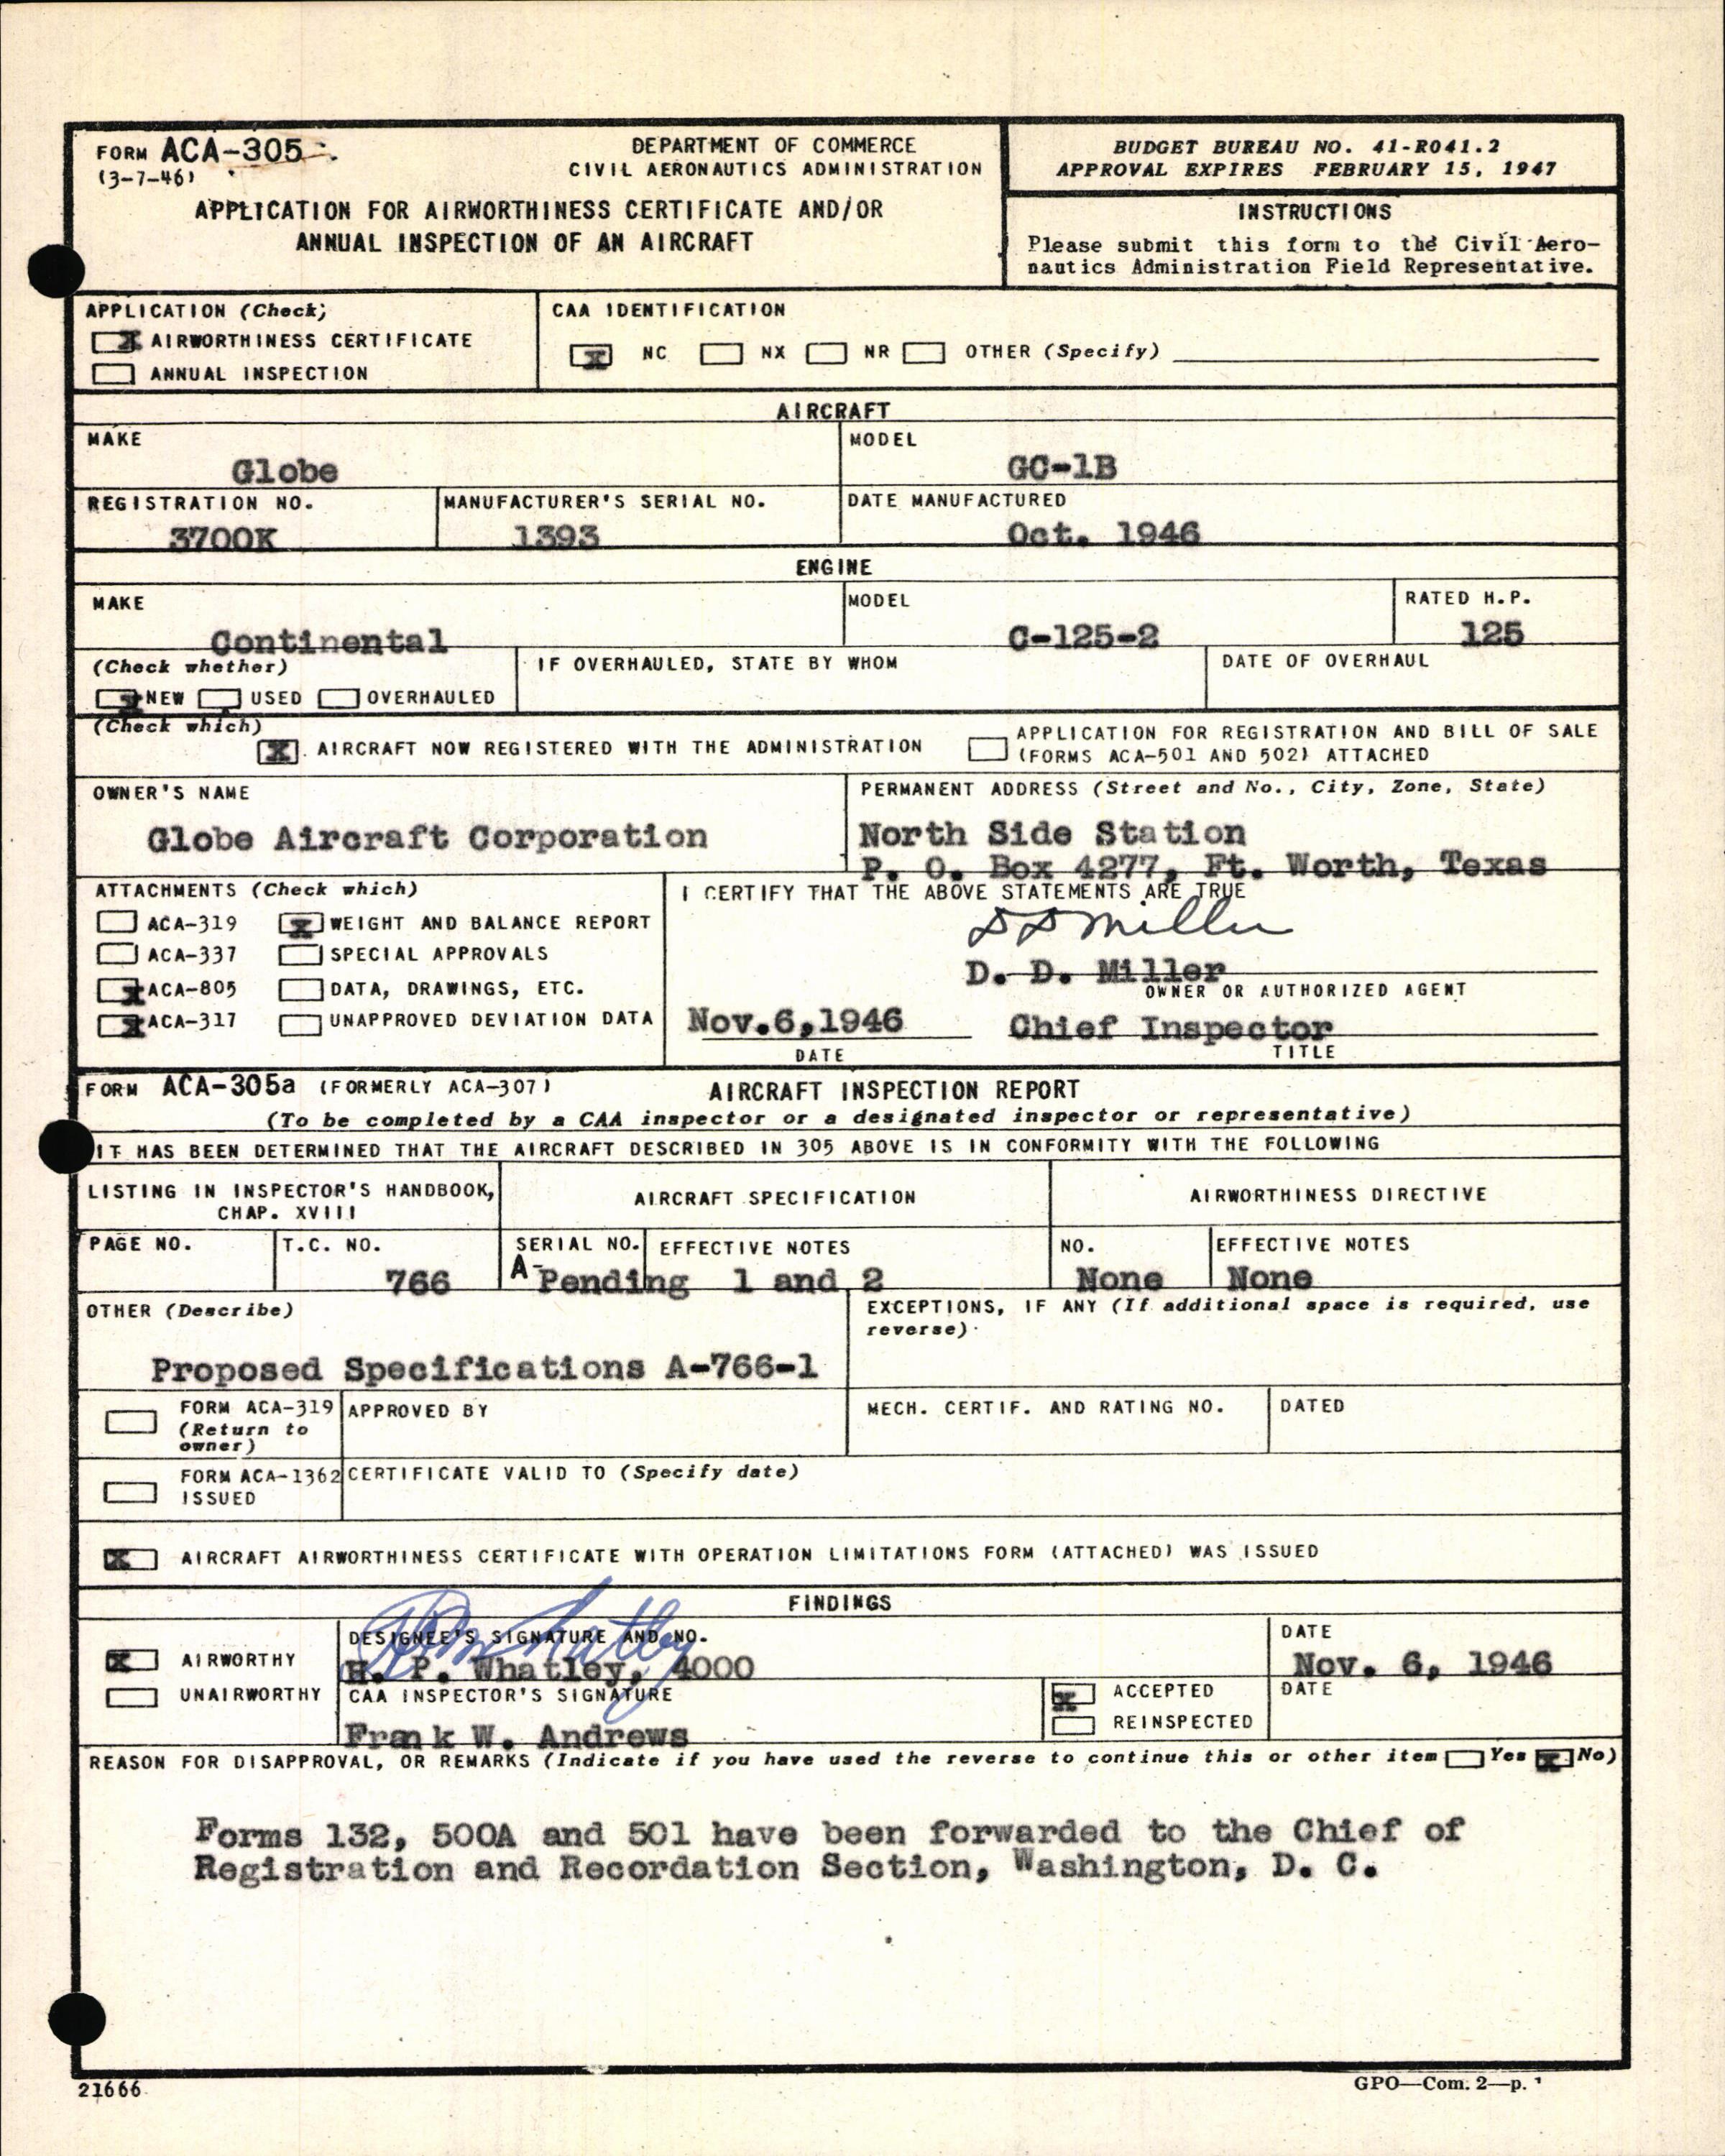 FORM ACA-305
(3-7-46)
DEPARTMENT OF COMMERCE
CIVIL AERONAUTICS ADMINISTRATION
APPLICATION FOR AIRWORTHINESS CERTIFICATE AND/OR
ANNUAL INSPECTION OF AN AIRCRAFT
BUDGET BUREAU NO. 41-R041.2
APPROVAL EXPIRES FEBRUARY 15, 1947
INSTRUCTIONS
Please submit this form to the Civil Aero-
nautics Administration Field Representative.
APPLICATION (Check)
X AIRWORTHINESS CERTIFICATE
ANNUAL INSPECTION
CAA IDENTIFICATION
X NC NX NR OTHER (Specify)
AIRCRAFT
MAKE
Globe
MODEL
GC-1B
REGISTRATION NO.
3700K
MANUFACTURER'S SERIAL NO.
1393
DATE MANUFACTURED
Oct. 1946
ENGINE
MAKE
Continental
MODEL
C-125-2
RATED H.P.
125
(Check whether)
X NEW USED OVERHAULED
IF OVERHAULED, STATE BY WHOM
DATE OF OVERHAUL
(Check which)
X AIRCRAFT NOW REGISTERED WITH THE ADMINISTRATION
APPLICATION FOR REGISTRATION AND BILL OF SALE
(FORMS ACA-501 AND 502) ATTACHED
OWNER'S NAME
Globe Aircraft Corporation
PERMANENT ADDRESS (Street and No., City, Zone, State)
North Side Station
P. O. Box 4277, Ft. Worth, Texas
ATTACHMENTS (Check which)
ACA-319 X WEIGHT AND BALANCE REPORT
ACA-337 SPECIAL APPROVALS
X ACA-805 DATA, DRAWINGS, ETC.
X ACA-317 UNAPPROVED DEVIATION DATA
I CERTIFY THAT THE ABOVE STATEMENTS ARE TRUE
D D Miller
D. D. Miller
OWNER OR AUTHORIZED AGENT
Nov.6,1946 Chief Inspector
DATE TITLE
FORM ACA-305a (FORMERLY ACA-307) AIRCRAFT INSPECTION REPORT
(To be completed by a CAA inspector or a designated inspector or representative)
IT HAS BEEN DETERMINED THAT THE AIRCRAFT DESCRIBED IN 305 ABOVE IS IN CONFORMITY WITH THE FOLLOWING
LISTING IN INSPECTOR'S HANDBOOK,
CHAP. XVIII
AIRCRAFT SPECIFICATION
AIRWORTHINESS DIRECTIVE
PAGE NO.
T.C. NO.
766
SERIAL NO.
A-Pending
EFFECTIVE NOTES
1 and 2
NO.
None
EFFECTIVE NOTES
None
OTHER (Describe)
Proposed Specifications A-766-1
EXCEPTIONS, IF ANY (If additional space is required, use
reverse)
FORM ACA-319
(Return to
owner)
APPROVED BY
MECH. CERTIF. AND RATING NO.
DATED
FORM ACA-1362
ISSUED
CERTIFICATE VALID TO (Specify date)
X AIRCRAFT AIRWORTHINESS CERTIFICATE WITH OPERATION LIMITATIONS FORM (ATTACHED) WAS ISSUED
FINDINGS
X AIRWORTHY
UNAIRWORTHY
DESIGNEE'S SIGNATURE AND NO.
H P Whatley
H. P. Whatley, 4000
DATE
Nov. 6, 1946
CAA INSPECTOR'S SIGNATURE
Frank W. Andrews
X ACCEPTED
REINSPECTED
DATE
REASON FOR DISAPPROVAL, OR REMARKS (Indicate if you have used the reverse to continue this or other item Yes X No)
Forms 132, 500A and 501 have been forwarded to the Chief of
Registration and Recordation Section, Washington, D. C.
21666
GPO—Com. 2—p. 1